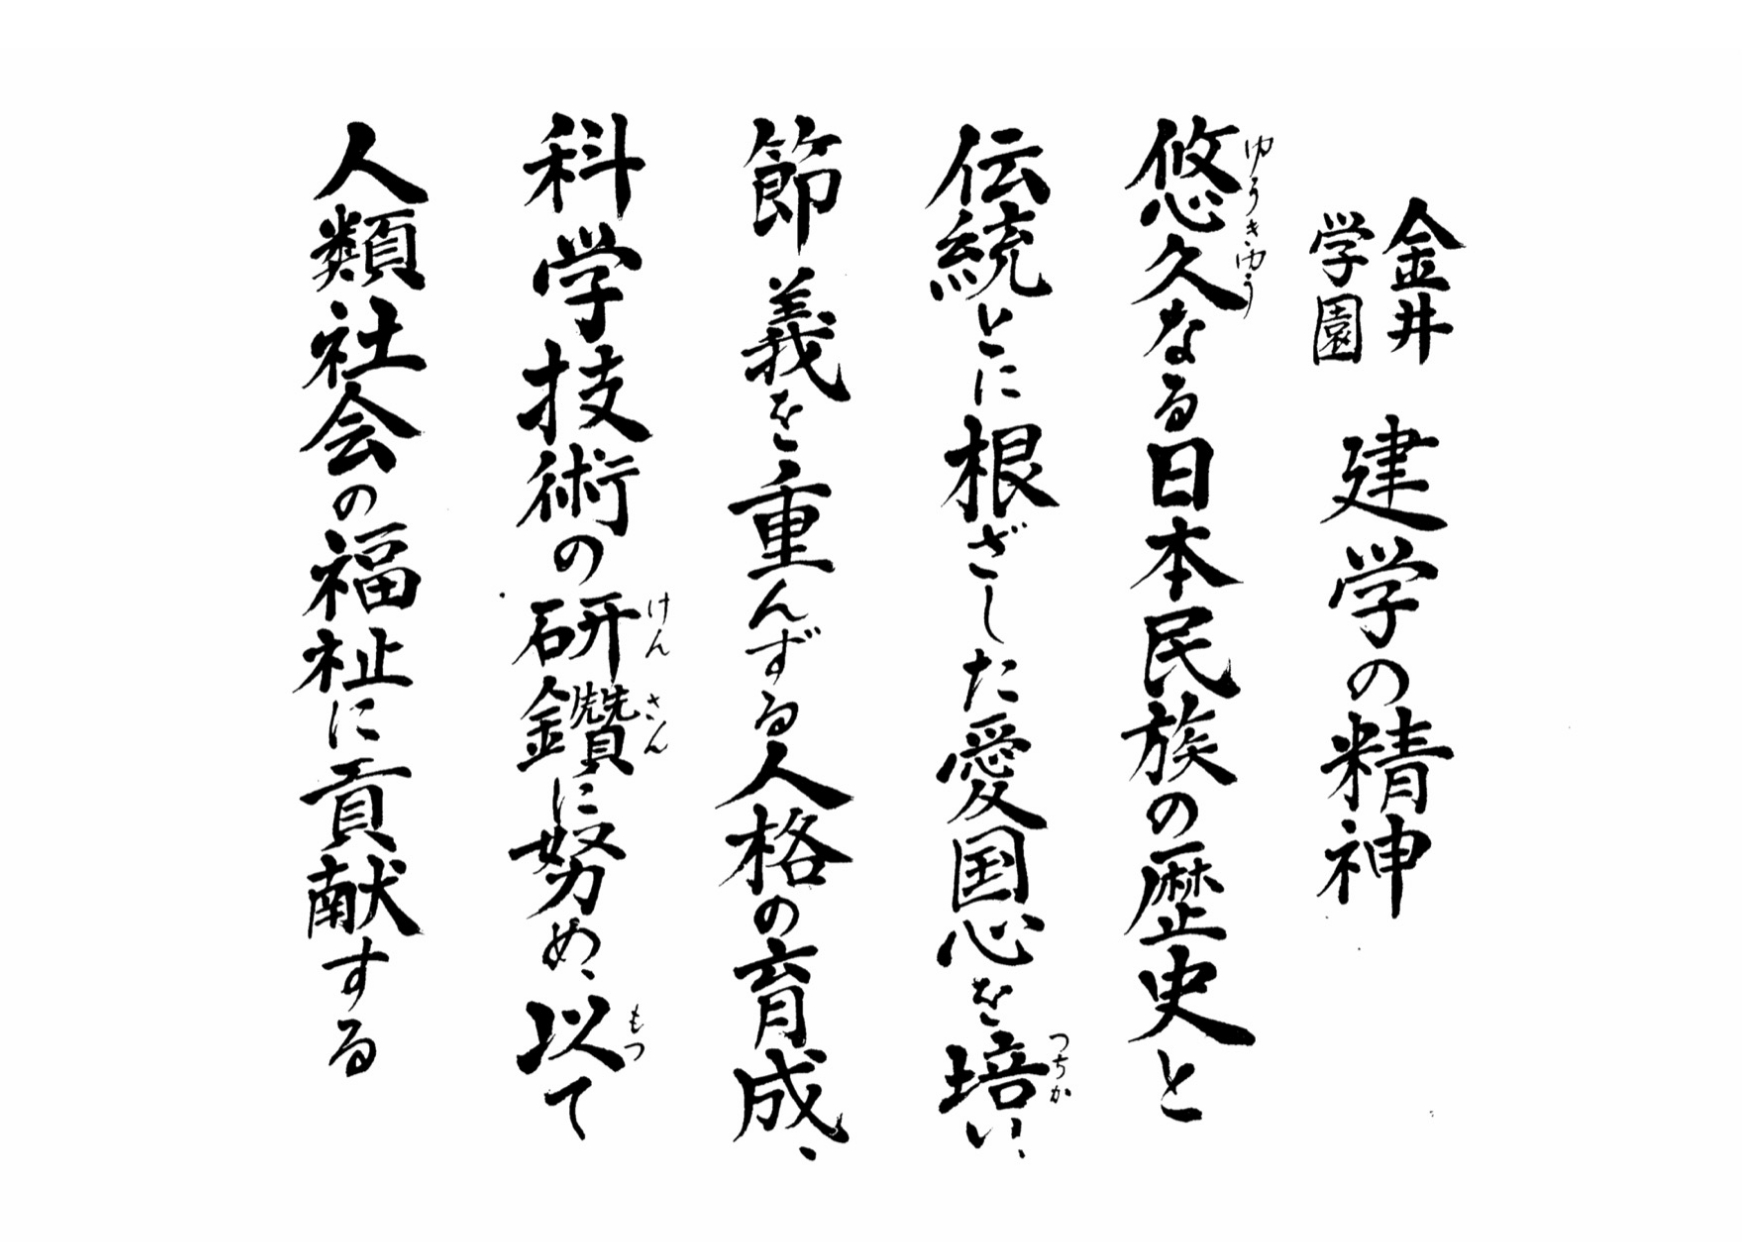 金井学園 建学の精神
悠久なる日本民族の歴史と
ゆうきゆう
伝統とに根ざした愛国心を培い、
つちか
節義を重んずる人格の育成、
科学技術の研鑽に努め、以て
けんさん
もつ
人類社会の福祉に貢献する